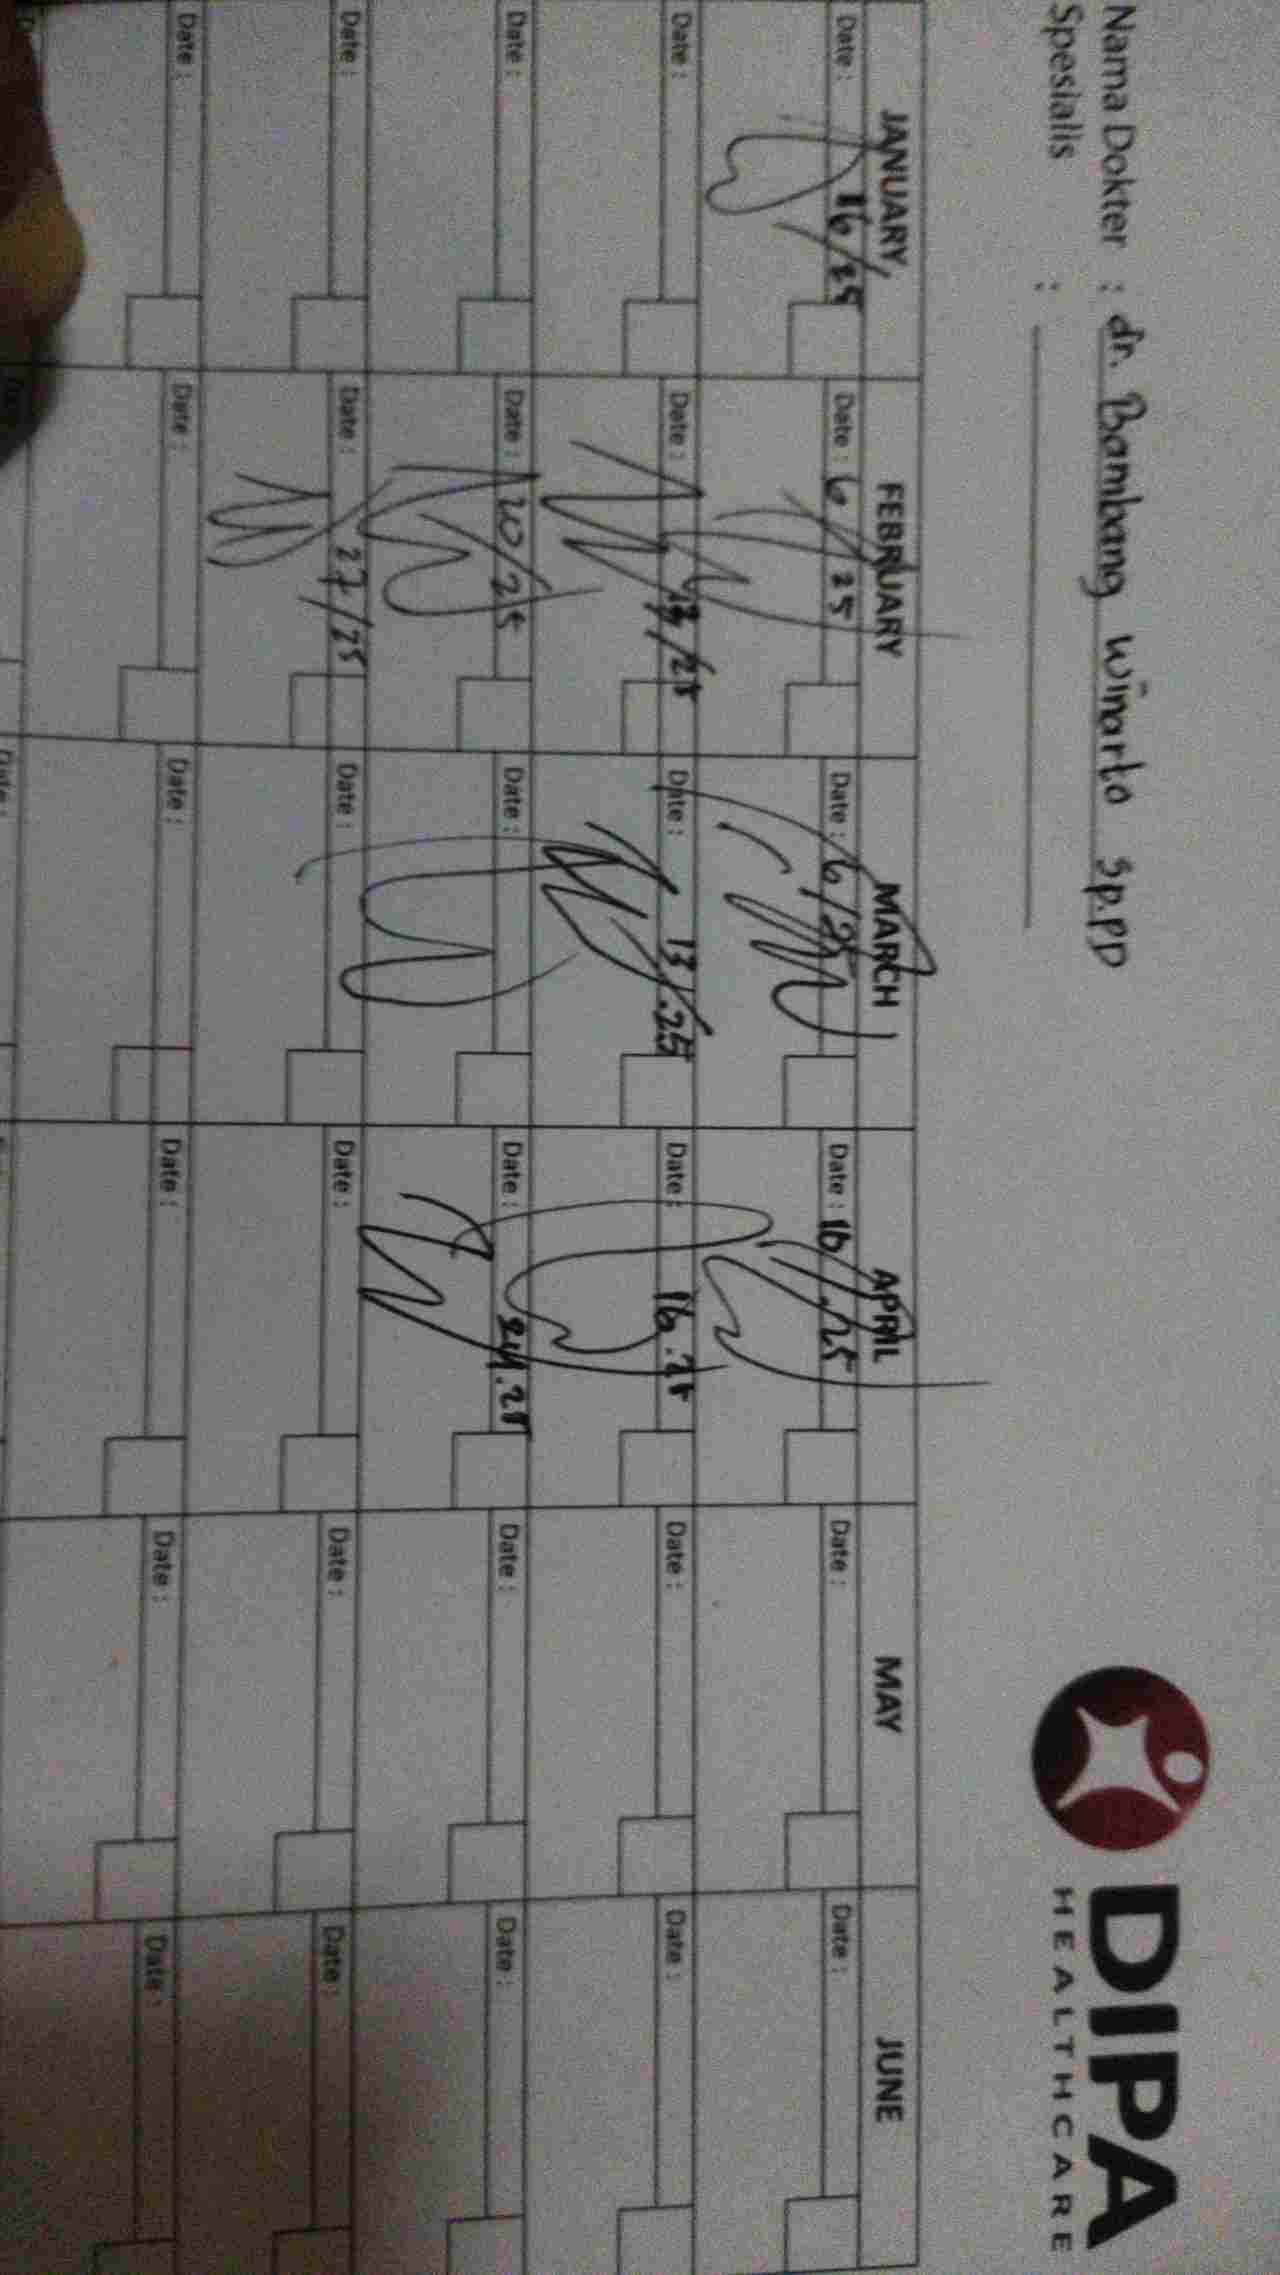 Nama Dokter : dr. Bambang winarto sp.PD
Spesialis :
DIPA
HEALTHCARE
JANUARY FEBRUARY MARCH APRIL MAY JUNE
Date : 16/25 Date : 6/25 Date : 6/25 Date : 10/25 Date : Date :
Date : Date : 13/25 Date : 13/.25 Date : 16.25 Date : Date :
Date : Date : 20/25 Date : Date : 24.25 Date : Date :
Date : Date : 27/25 Date : Date : Date : Date :
Date : Date : Date : Date : Date : Date :